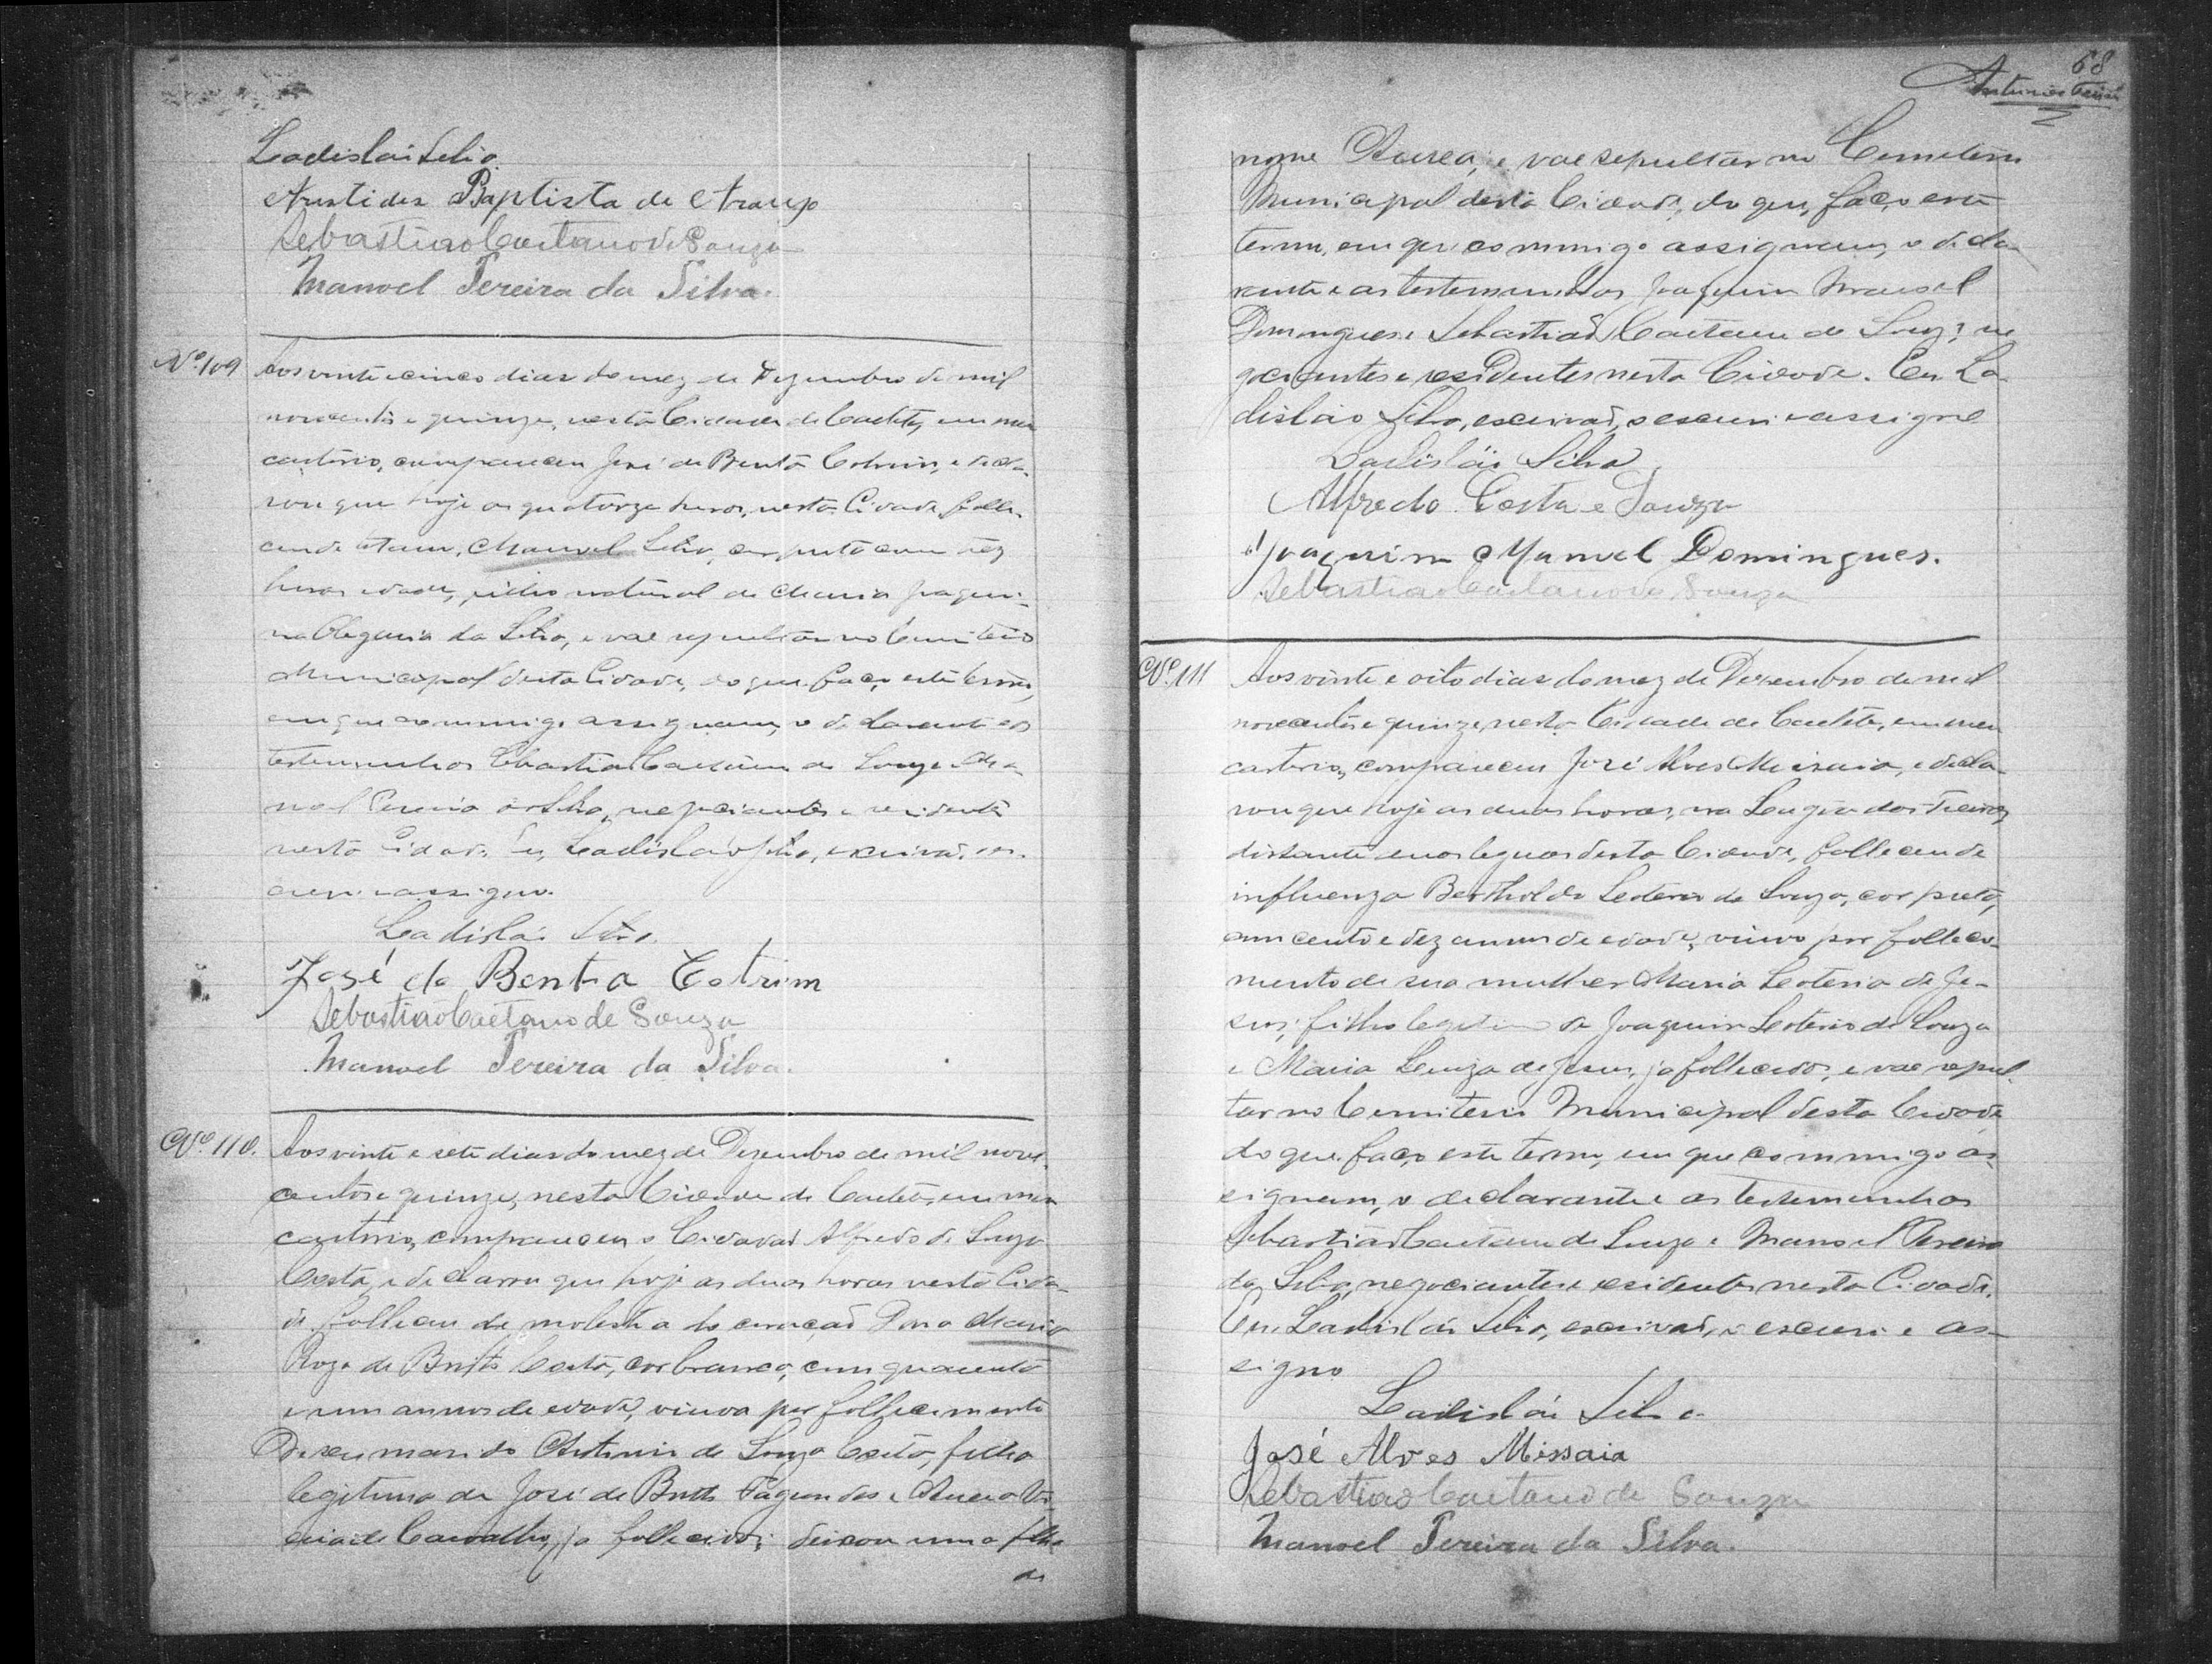 Ladislái Silva
Aristides Baptista de Araujo
Sebastião Caetano de Souza
Manoel Pereira da Silva.
Nº 109 Aos vinte e cinco dias do mez de Dezembro de mil
novecentos e quinze, nesta Cidade de Caeteté, em meu
cartorio, compareceu José de Bento Cotrim, e decla-
rou que hoje as quatorze horas, nesta Cidade, falle-
ceu de tetano, Manoel Silva, cor preta com dez
horas edade, filho natural de Maria Joaqui-
na Olegaria da Silva, e vae sepultar no Cemiterio
Municipal desta Cidade, do que, faço este termo,
em que commigo assignam, o declarante e as
testemunhas Sebastião Caetano de Souza e Ma-
noel Pereira da Silva, negociantes e residentes
nesta Cidade. Eu, Ladisláo Silva, escrivão, o es-
crevi e assigno.
Ladislái Silva.
José de Benta Cotrim
Sebastião Caetano de Souza
Manoel Pereira da Silva.
Nº 110. Aos vinte e sete dias do mez de Dezembro de mil nove-
centos e quinze, nesta Cidade de Caeteté, em meu
cartorio, compareceu o Cidadão Alfredo de Souza
Costa, e declarou que hoje as duas horas nesta Cida-
de, falleceu de molestia do coração Dona Maria
Roza de Britto Costa, cor branca, com quarenta
e um annos de edade, viuva por fallecimento
de seu marido Antonio de Souza Costa, filha
legitima de José de Britto Fagundes e Aurea
de Carvalho, ja fallecidos; deixou uma filha
de
68
Antonio
nome Aurea, e vae sepultar no Cemiterio
Municipal desta Cidade, do que, faço este
termo, em que commigo assignam, o decla-
rante e as testemunhas Joaquim Manoel
Domingues e Sebastião Caetano de Souza, ne-
gociantes e residentes nesta Cidade. Eu La-
disláo Silva, escrivão, o escrevi e assigno
Ladislái Silva
Alfredo Costa e Souza
Joaquim Manoel Domingues.
Sebastião Caetano de Souza
Nº 111 Aos vinte e oito dias do mez de Dezembro de mil
novecentos e quinze, nesta Cidade de Caeteté, em meu
cartorio, compareceu José Alves Missaia, e decla-
rou que hoje as duas horas, na Lagôa das
distante duas leguas desta Cidade, falleceu de
influenza Bertholdo Leoterio de Souza, cor preta,
com cento e dez annos de edade, viuvo por falleci-
mento de sua mulher Maria Leoteria de Je-
sus; filho legitimo de Joaquim Leoterio de Souza
e Maria Luiza de Jesus, ja fallecidos, e vae sepul-
tar no Cemiterio Municipal desta Cidade,
do que, faço este termo, em que commigo as-
signam, o declarante e as testemunhas
Sebastião Caetano de Souza e Manoel Pereira
da Silva, negociantes e residentes nesta Cidade.
Eu, Ladislái Silva, escrivão, o escrevi e as-
signo
Ladislái Silva
José Alves Missaia
Sebastião Caetano de Souza
Manoel Pereira da Silva.